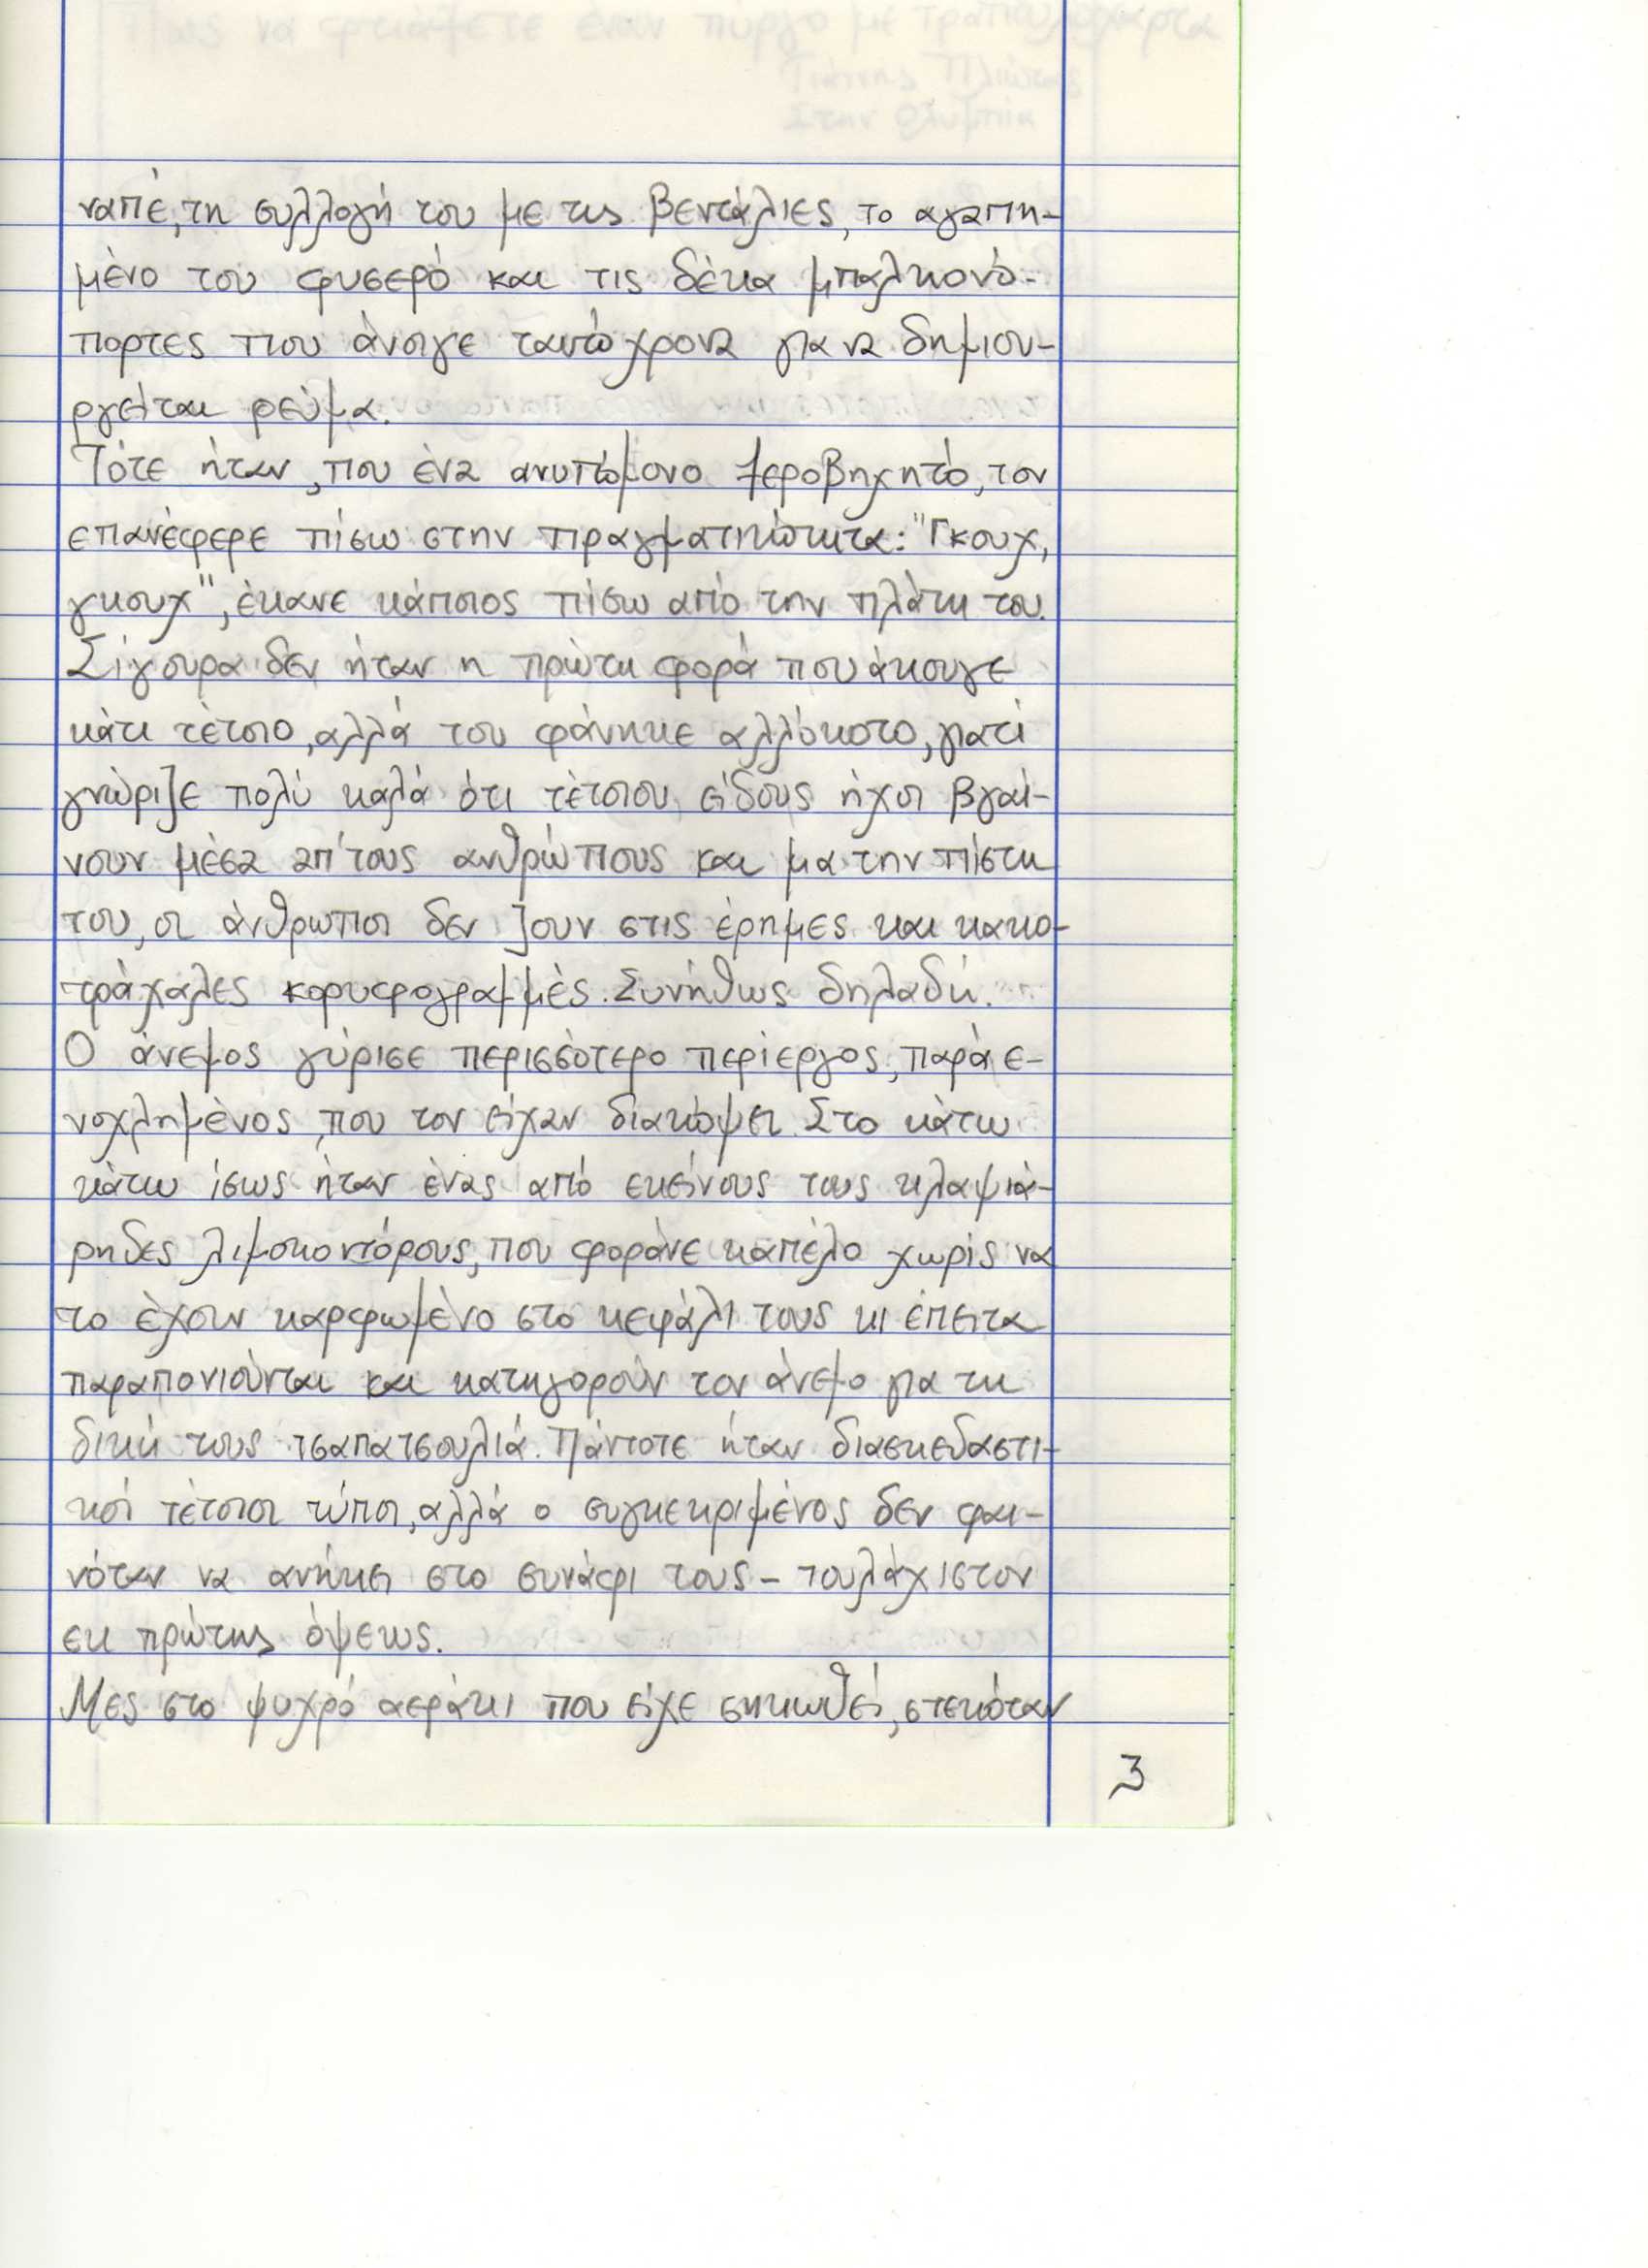 Πως να φτιάξετε έναν πύργο με τραπουλόχαρτα
Γιάννης Πλιώτας
Στην Ολυμπία
ναπέ, τη συλλογή του με τις βεντάλιες, το αγαπη-
μένο του φυσερό και τις δέκα μπαλκονό-
πορτες που άνοιγε ταυτόχρονα για να δημιου-
ργείται ρεύμα.
Τότε ήταν, που ένα ανυπόμονο ξεροβηχητό, τον
επανέφερε πίσω στην πραγματικότητα: "Γκουχ,
γκουχ", έκανε κάποιος πίσω από την πλάτη του.
Σίγουρα δεν ήταν η πρώτη φορά που άκουγε
κάτι τέτοιο, αλλά του φάνηκε αλλόκοτο, γιατί
γνώριζε πολύ καλά ότι τέτοιου είδους ήχοι βγαί-
νουν μέσα απ' τους ανθρώπους και μα την πίστη
του, οι άνθρωποι δεν ζουν στις έρημες και κακο-
τράχαλες κορυφογραμμές. Συνήθως δηλαδή.
Ο άνεμος γύρισε περισσότερο περίεργος, παρά ε-
νοχλημένος, που τον είχαν διακόψει. Στο κάτω
κάτω ίσως ήταν ένας από εκείνους τους κλαψιά-
ρηδες λιμοκοντόρους, που φοράνε καπέλο χωρίς να
το έχουν καρφωμένο στο κεφάλι τους κι έπειτα
παραπονιούνται και κατηγορούν τον άνεμο για τη
δική τους τσαπατσουλιά. Πάντοτε ήταν διασκεδαστι-
κοί τέτοιοι τύποι, αλλά ο συγκεκριμένος δεν φαι-
νόταν να ανήκει στο συνάφι τους - τουλάχιστον
εκ πρώτης όψεως.
Μες στο ψυχρό αεράκι που είχε σηκωθεί, στεκόταν
3